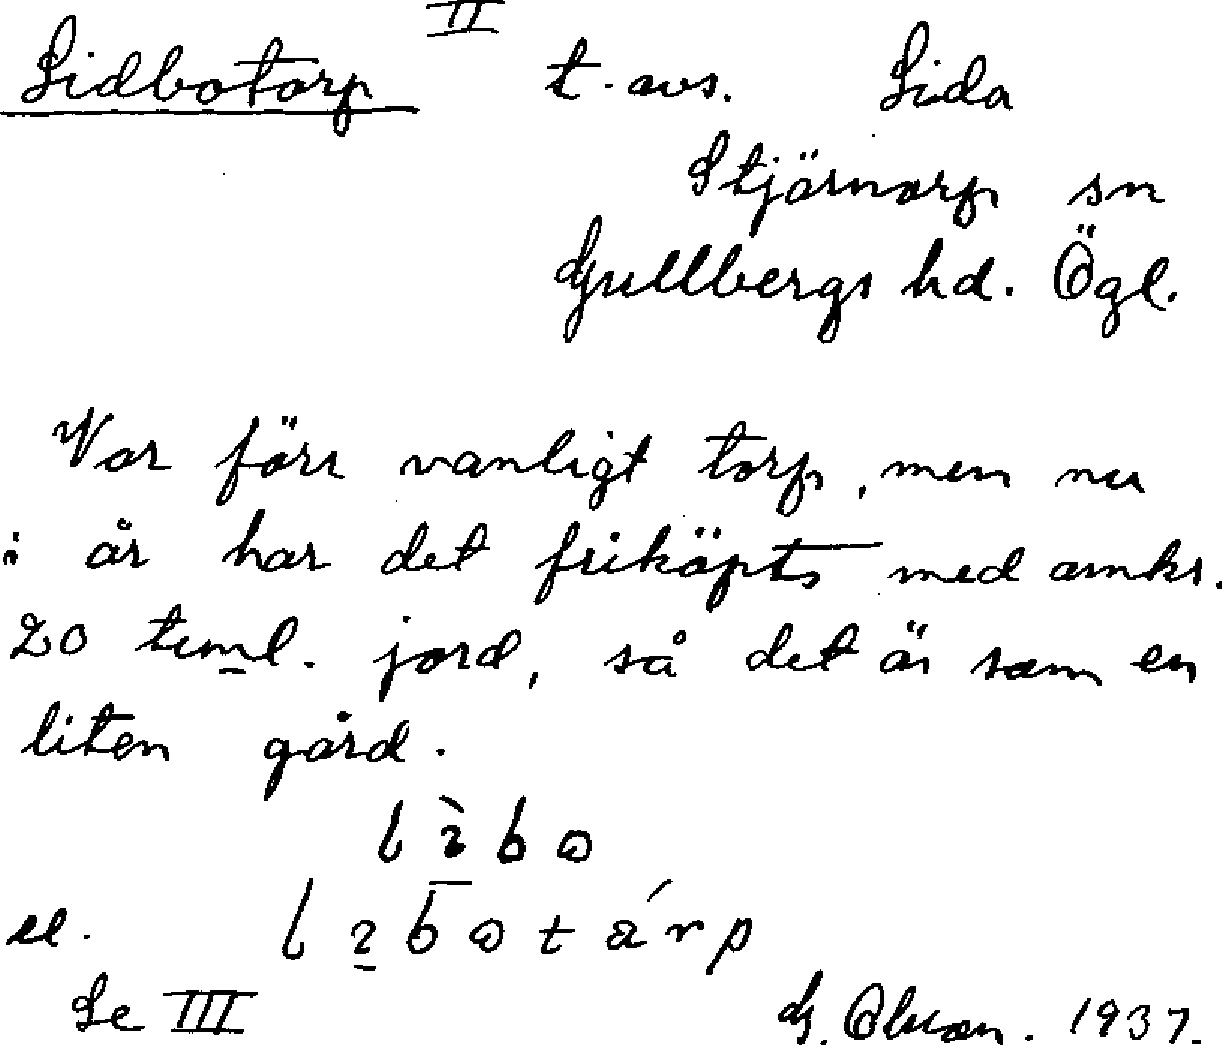 II
Lidbotorp t. avs. Lida
Stjärnorp sn
Gullbergs hd. Ögl.
Var förr vanligt torp, men nu
i år har det friköpts med omkr.
20 tunl. jord, så det är som en
liten gård.
lìbω
el. lıbωtárp
Se III G. Olsson. 1937.